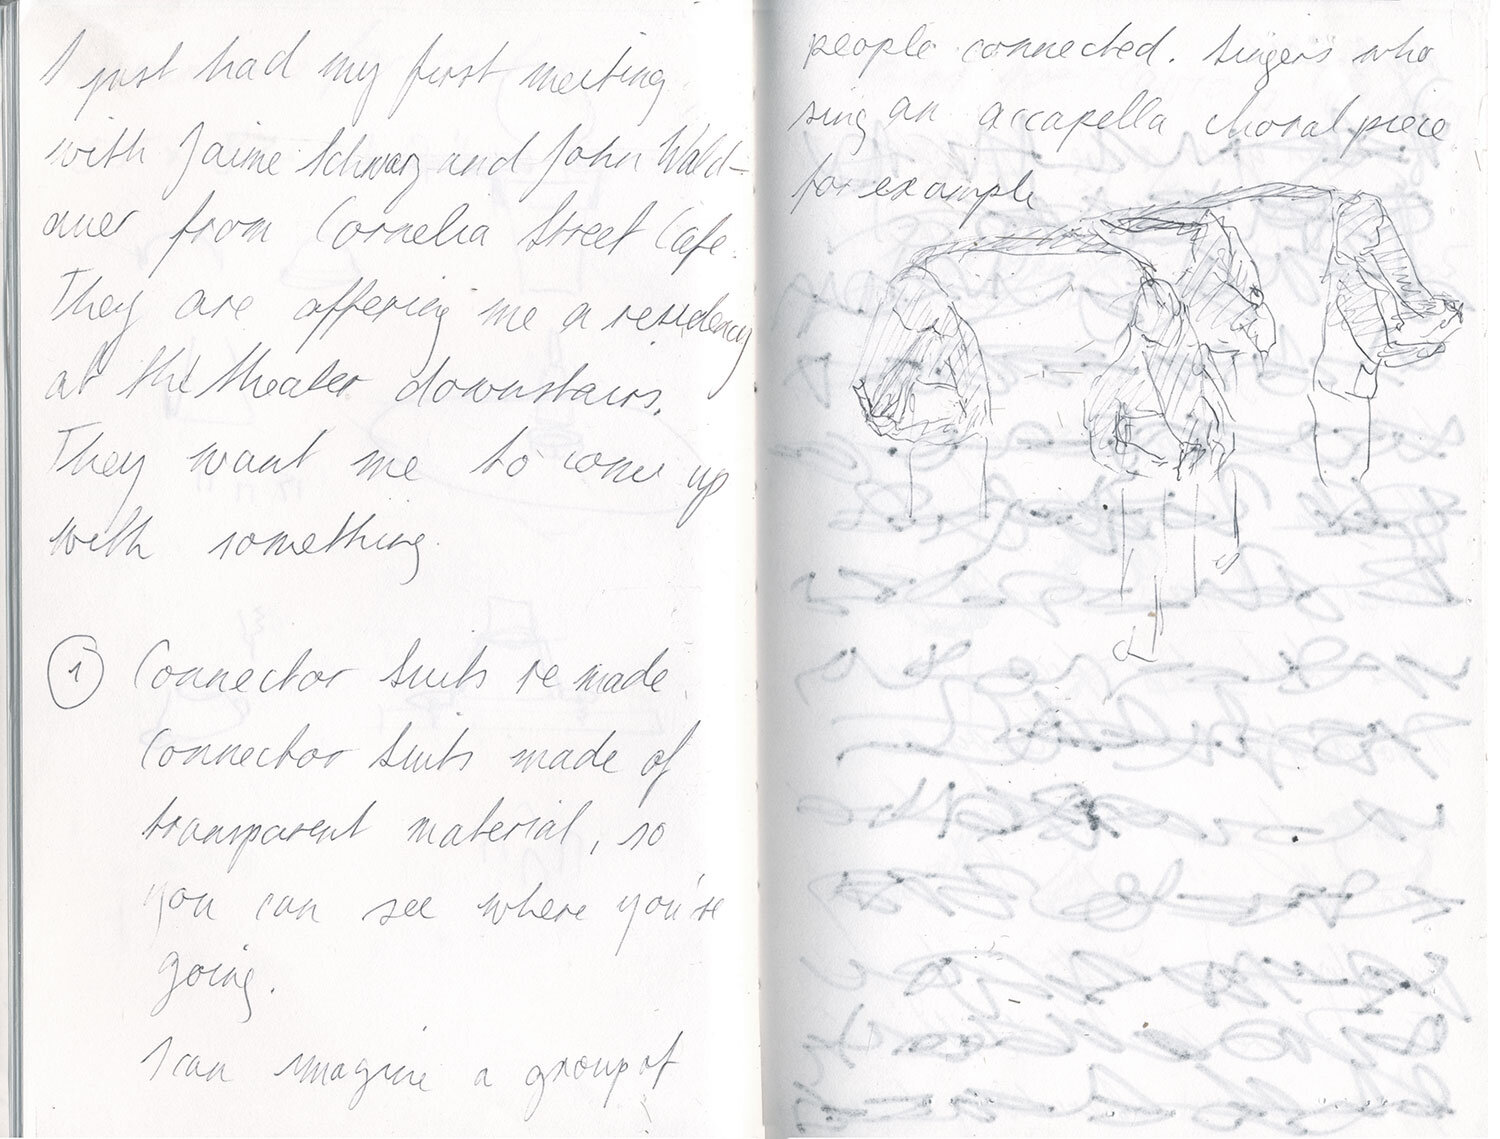 I just had my first meeting
with Jaime Schwarz and John Wald-
auer from Cornelia Street Cafe.
They are offering me a residency
at the theater downstairs.
They want me to come up
with something.
1 Connector Suits re made.
Connector Suits made of
transparent material, so
you can see where you're
going.
I can imagine a group of
people connected. Singers who
sing an accapella choral piece
for example